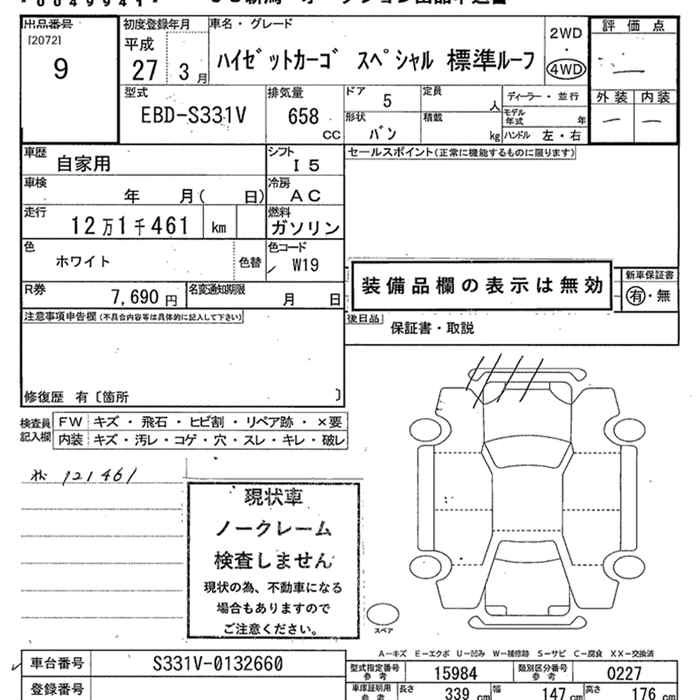 出品番号 初度登録年月 車名・グレード 2WD 評価点
[2072] 平成 ・
9 27 3月 ハイゼットカーゴ スペシャル 標準ルーフ 4WD ―
型式 排気量 ドア 5 定員 人 ディーラー・並行 外装 内装
EBD-S331V 658 cc 形状 バン 積載 kg モデル年式 年 ― ―
ハンドル 左・右
車歴 自家用 シフト I5 セールスポイント(正常に機能するものに限ります)
車検 年 月( 日) 冷房 AC
走行 12万1千461 km 燃料 ガソリン
色 ホワイト 色替 色コード W19
装備品欄の表示は無効 新車保証書
有・無
R券 7,690円 名変通知期限 月 日
後日品 保証書・取説
注意事項申告欄(不具合内容等は具体的に記入して下さい)
修復歴 有〔箇所 〕
検査員記入欄 FW キズ・飛石・ヒビ割・リペア跡・×要
内装 キズ・汚レ・コゲ・穴・スレ・キレ・破レ
121461
現状車
ノークレーム
検査しません
現状の為、不動車になる
場合もありますので
ご注意ください。
スペア
A-キズ E-エクボ U-凹み W-補修跡 S-サビ C-腐食 XX-交換済
車台番号 S331V-0132660 型式指定番号 参考 15984 類別区分番号 参考 0227
登録番号 車庫証明用 参考 長さ 339 cm 幅 147 cm 高さ 176 cm